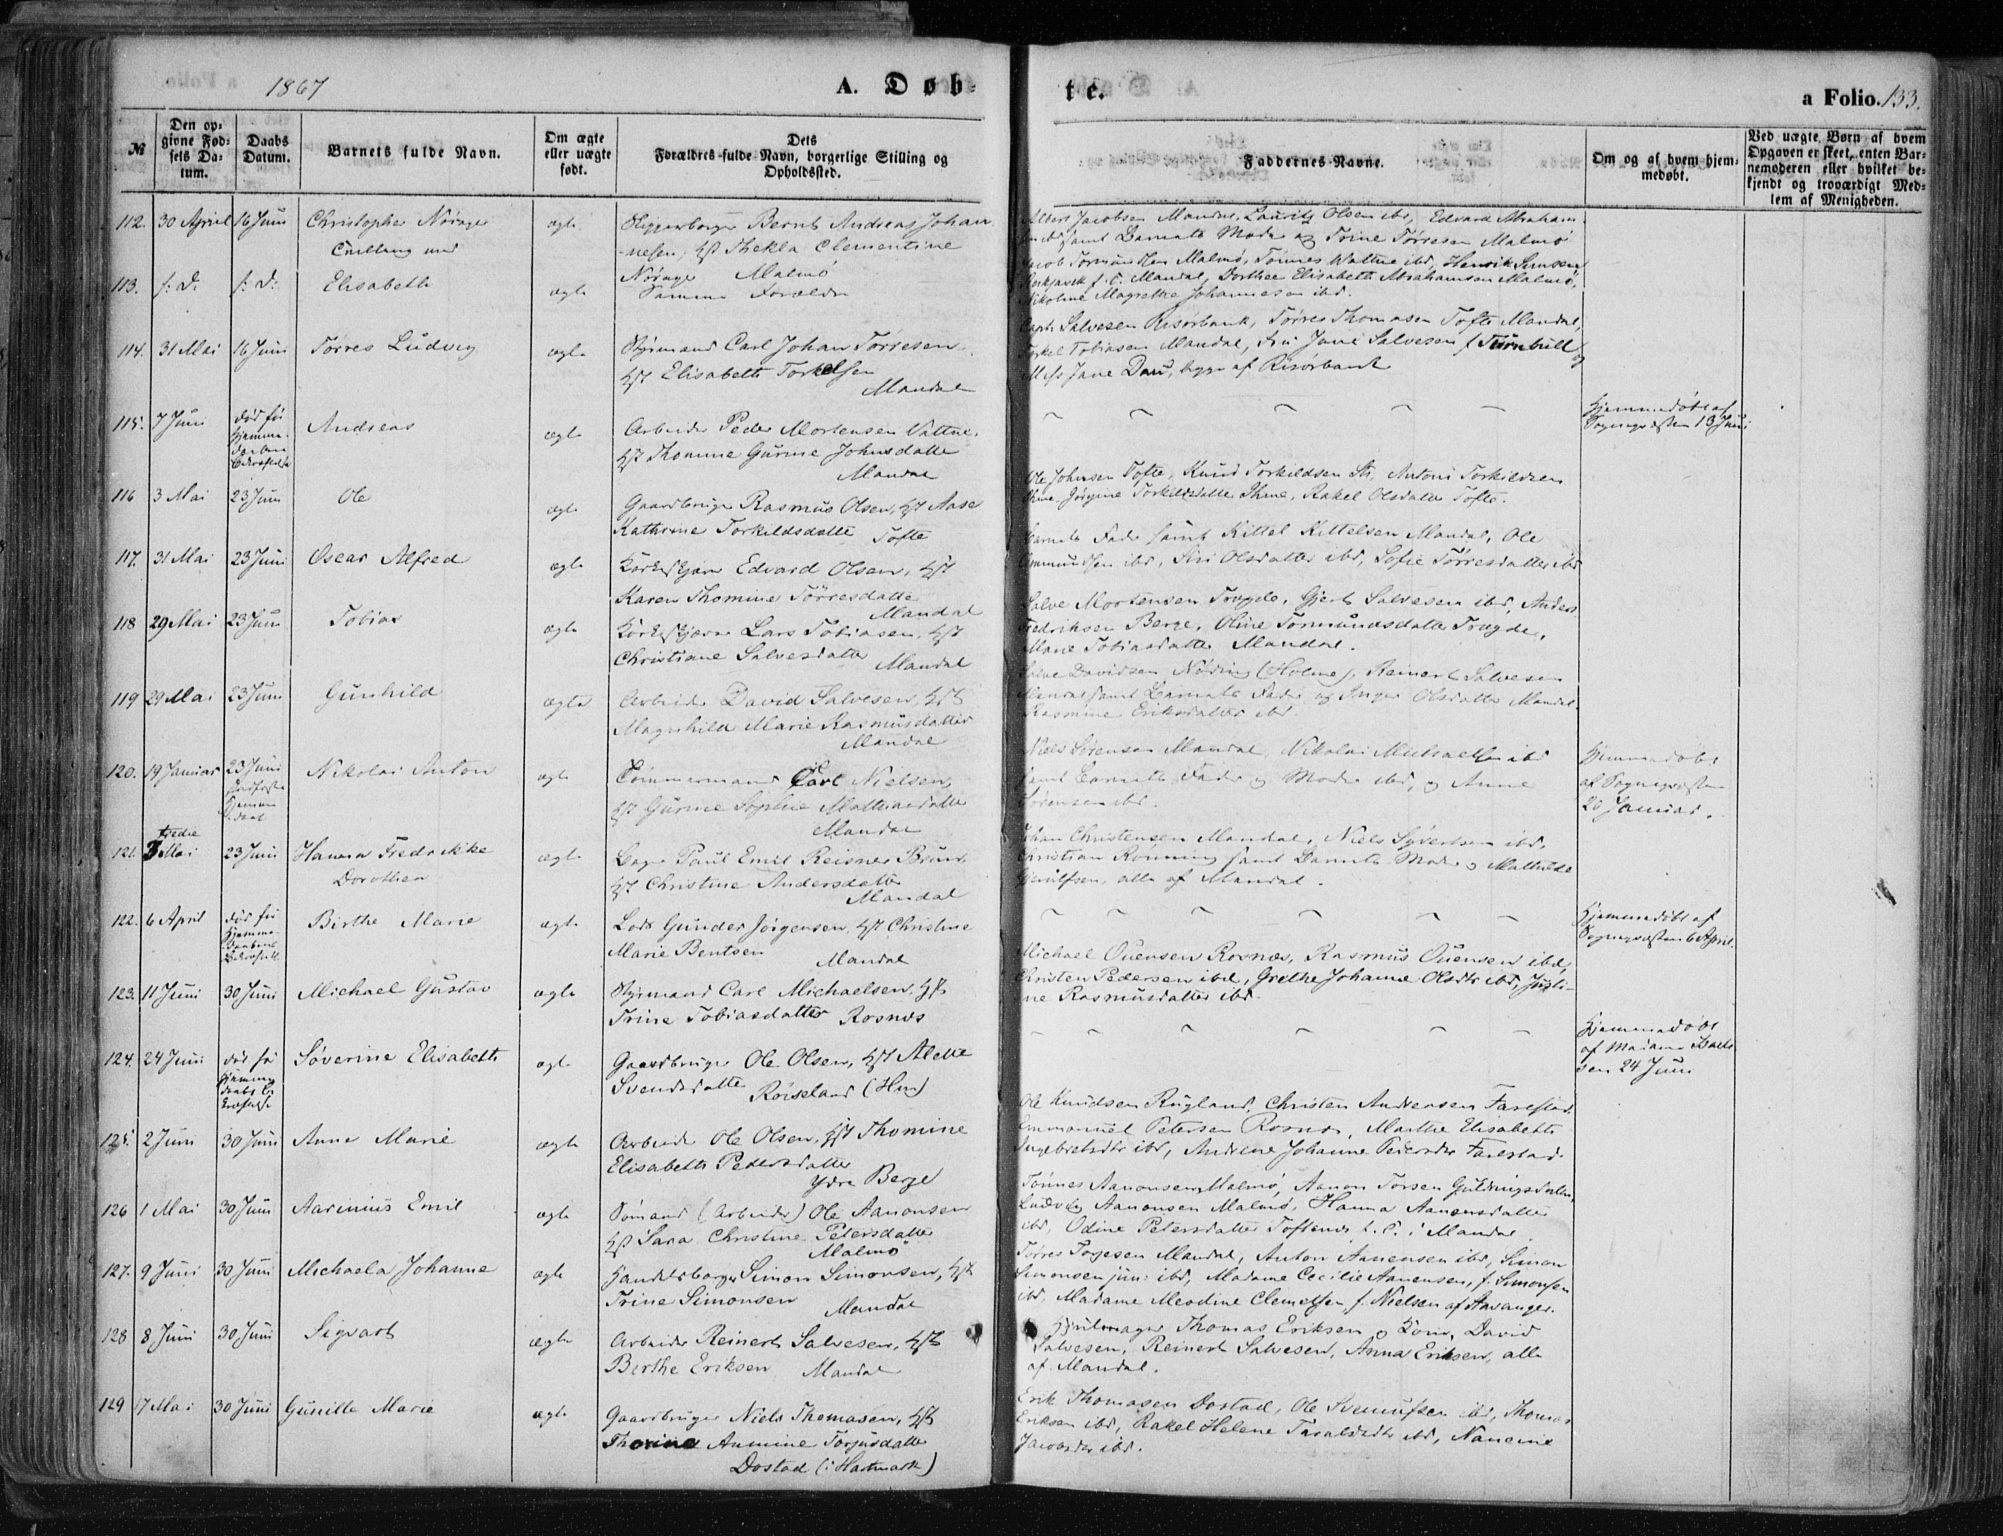 1867
A. Døb-
te.
a Folio. 133.
№
Den op-
givne Fød-
sels Da-
tum.
Daabs
Datum.
Barnets fulde Navn.
Om ægte
eller uægte
født.
Dets
Forældres fulde Navn, borgerlige Stilling og
Opholdssted.
Faddernes Navne.
Om og af hvem hjem-
medøbt.
Ved uægte Børn af hvem
Opgaven er skeet, enten Bar-
nemoderen eller hvilket be-
kjendt og troværdigt Med-
lem af Menigheden.
112. 30 April 16 Juni Christopher Nørage
ægte
Bernt Andreas Johan
-nesen, Thekla Clementine
Nørage Malmö
Jacobsen Mandal, Lauritz Olsen ibd, Edvard Abraham
samt Barnets Moder og Trine Tørresen Malmö
113. f. d. f. d. Elisabeth
ægte
Samme Forældre
Malmö, Tønnes Wattne ibd, Henrik Simsen
f. T. Mandal, Dorthea Elisabeth Abrahamsen Malmö,
Nikoline Magrethe Johannesen ibd.
114. 31 Mai 16 Juni Tørres Ludvig
ægte
Styrmand Carl Johan Tørresen
Elisabeth Torkelsen
Mandal
Capt. Salvesen Risørbank, Tørres Thomasen Tofte Mandal,
Tobiasen Mandal, Jane Salvesen f. Turnbull og
Miss Jane Dau, begge af Risørbank
115. 7 Juni død før
Hjemme-
daaben
Andreas
ægte
Arbeider Peder Mortensen Vattne,
Thomine Gurine Johnsdatter
Mandal
Hjemmedøbt af
Sognepræsten 13 Juni
116 3 Mai 23 Juni Ole
ægte
Gaardbruger Rasmus Olsen, Aase
Kathrine Torkildsdatter Tofte
Ole Johnsen Tofte, Knud Torkildsen, Antoni Torkildsen
Ihme, Jørgine Torkildsdatter Ihme, Rakel Olsdatter Tofte.
117. 31 Mai 23 Juni Oscar Alfred
ægte
Edvard Olsen,
Karen Thomine Tørresdatter
Mandal
Barnets Fader samt Kittel Kittelsen Mandal, Ole
ibd, Siri Olsdatter ibd, Sofie Tørresdatter ibd
118 29 Mai 23 Juni Tobias
ægte
Lars Tobiasen,
Christiane Salvesdatter Mandal
Salve Mortensen Trygde, Gjert Salvesen ibd, Anders
Fredriksen Berge, Oline Tormundsdatter Trygde,
Marie Tobiasdatter Mandal.
119 29 Mai 23 Juni Gunhild
ægte
Arbeider David Salvesen,
Magnhild Marie Rasmusdatter
Mandal
Salve Davidsen Nøding (Holme), Reinert Salvesen
Mandal samt Barnets Fader og Inger Olsdatter Mandal
Rasmine Eriksdatter ibd.
120. 19 Januar 23 Juni
Nikolai Anton
ægte
Tømmermand Carl Nielsen,
Gurine Sophie Mathiasdatter
Mandal
Niels Sørensen Mandal, Nikolai Michaelsen ibd
samt Barnets Fader og Moder ibd, og Anne
Sørensen ibd.
Hjemmedøbt
af Sognepræsten
20 Januar.
121. tredie
3 Mai 23 Juni Hanna Fredrikke
Dorothea
ægte
Bager Paul Emil Reisner Bruun
Christine Andersdatter
Mandal
Johan Christensen Mandal, Niels Syvertsen ibd,
Christian Rønning samt Barnets Moder og Mathilde
alle af Mandal.
122. 6 April død før
Hjemme-
Daabens
Birthe Marie
ægte
Lods Gunder Jørgensen, Christine
Marie Bentsen
Mandal
Hjemmedøbt af
Sognepræsten 6 April.
123. 11 Juni 30 Juni Michael Gustav
ægte
Styrmand Carl Michaelsen,
Trine Tobiasdatter Rosnes
Michael Ouensen Rosnæs, Rasmus Ouensen ibd,
Christen Pedersen ibd, Grethe Johanne Olsdtr ibd, Justi-
ne Rasmusdatter ibd.
124. 24 Juni død før
Hjemme-
Søverine Elisabeth
ægte
Gaardbruger Ole Olsen, Alette
Svendsdatter Røiseland (Hm)
Hjemmedøbt
af Mariane
sen 24 Juni
125. 2 Juni 30 Juni Anne Marie
ægte
Arbeider Ole Olsen, Thomine
Elisabeth Pedersdatter
Ydre Berge
Ole Knudsen Rugland, Christen Andreasen Farestad
Emmanuel Petersen Rosnæs, Marthe Elisabeth
Ingebretsdtr ibd, Andrine Johanne Pedersdtr Farestad
126 1 Mai 30 Juni Aarinius Emil
ægte
Sømand (Arbeider) Ole Aanonsen
Sara Christine Petersdatter
Malmö
Tønnes Aanonsen Malmö, Aanon Torsen
Ludvig Aanonsen Malmö, Hanna Aanensdatter
ibd, Odine Petersdatter Toftenes f. T. i Mandal.
127. 9 Juni 30 Juni Michaela Johanne
ægte
Handelsborger Simon Simonsen,
Trine Simonsen
Mandal
Tørres Torjesen Mandal, Anton Aanensen ibd, Simon
Simonsen jun: ibd, Madame Cecilie Aanensen, f. Simonsen
ibd, Madame Meodine Clemetsen f. Nielsen af Stavanger.
128 8 Juni 30 Juni Sigvart
ægte
Arbeider Reinert Salvesen,
Berthe Eriksen Mandal
Hjulmager Thomas Eriksen og Kone, David
Salvesen, Reinert Salvesen, Anna Eriksen, alle
af Mandal.
129 17 Mai 30 Juni Gunille Marie
ægte
Gaardbruger Niels Thomasen,
Thorine Anmine Torjusdatter
Dostad (i Hartmark)
Erik Thomasen Dostad, Ole Svenufsen ibd, Thomas
Eriksen ibd, Rakel Helene Taraldsdtr ibd, Nancine
Jacobsdtr ibd.